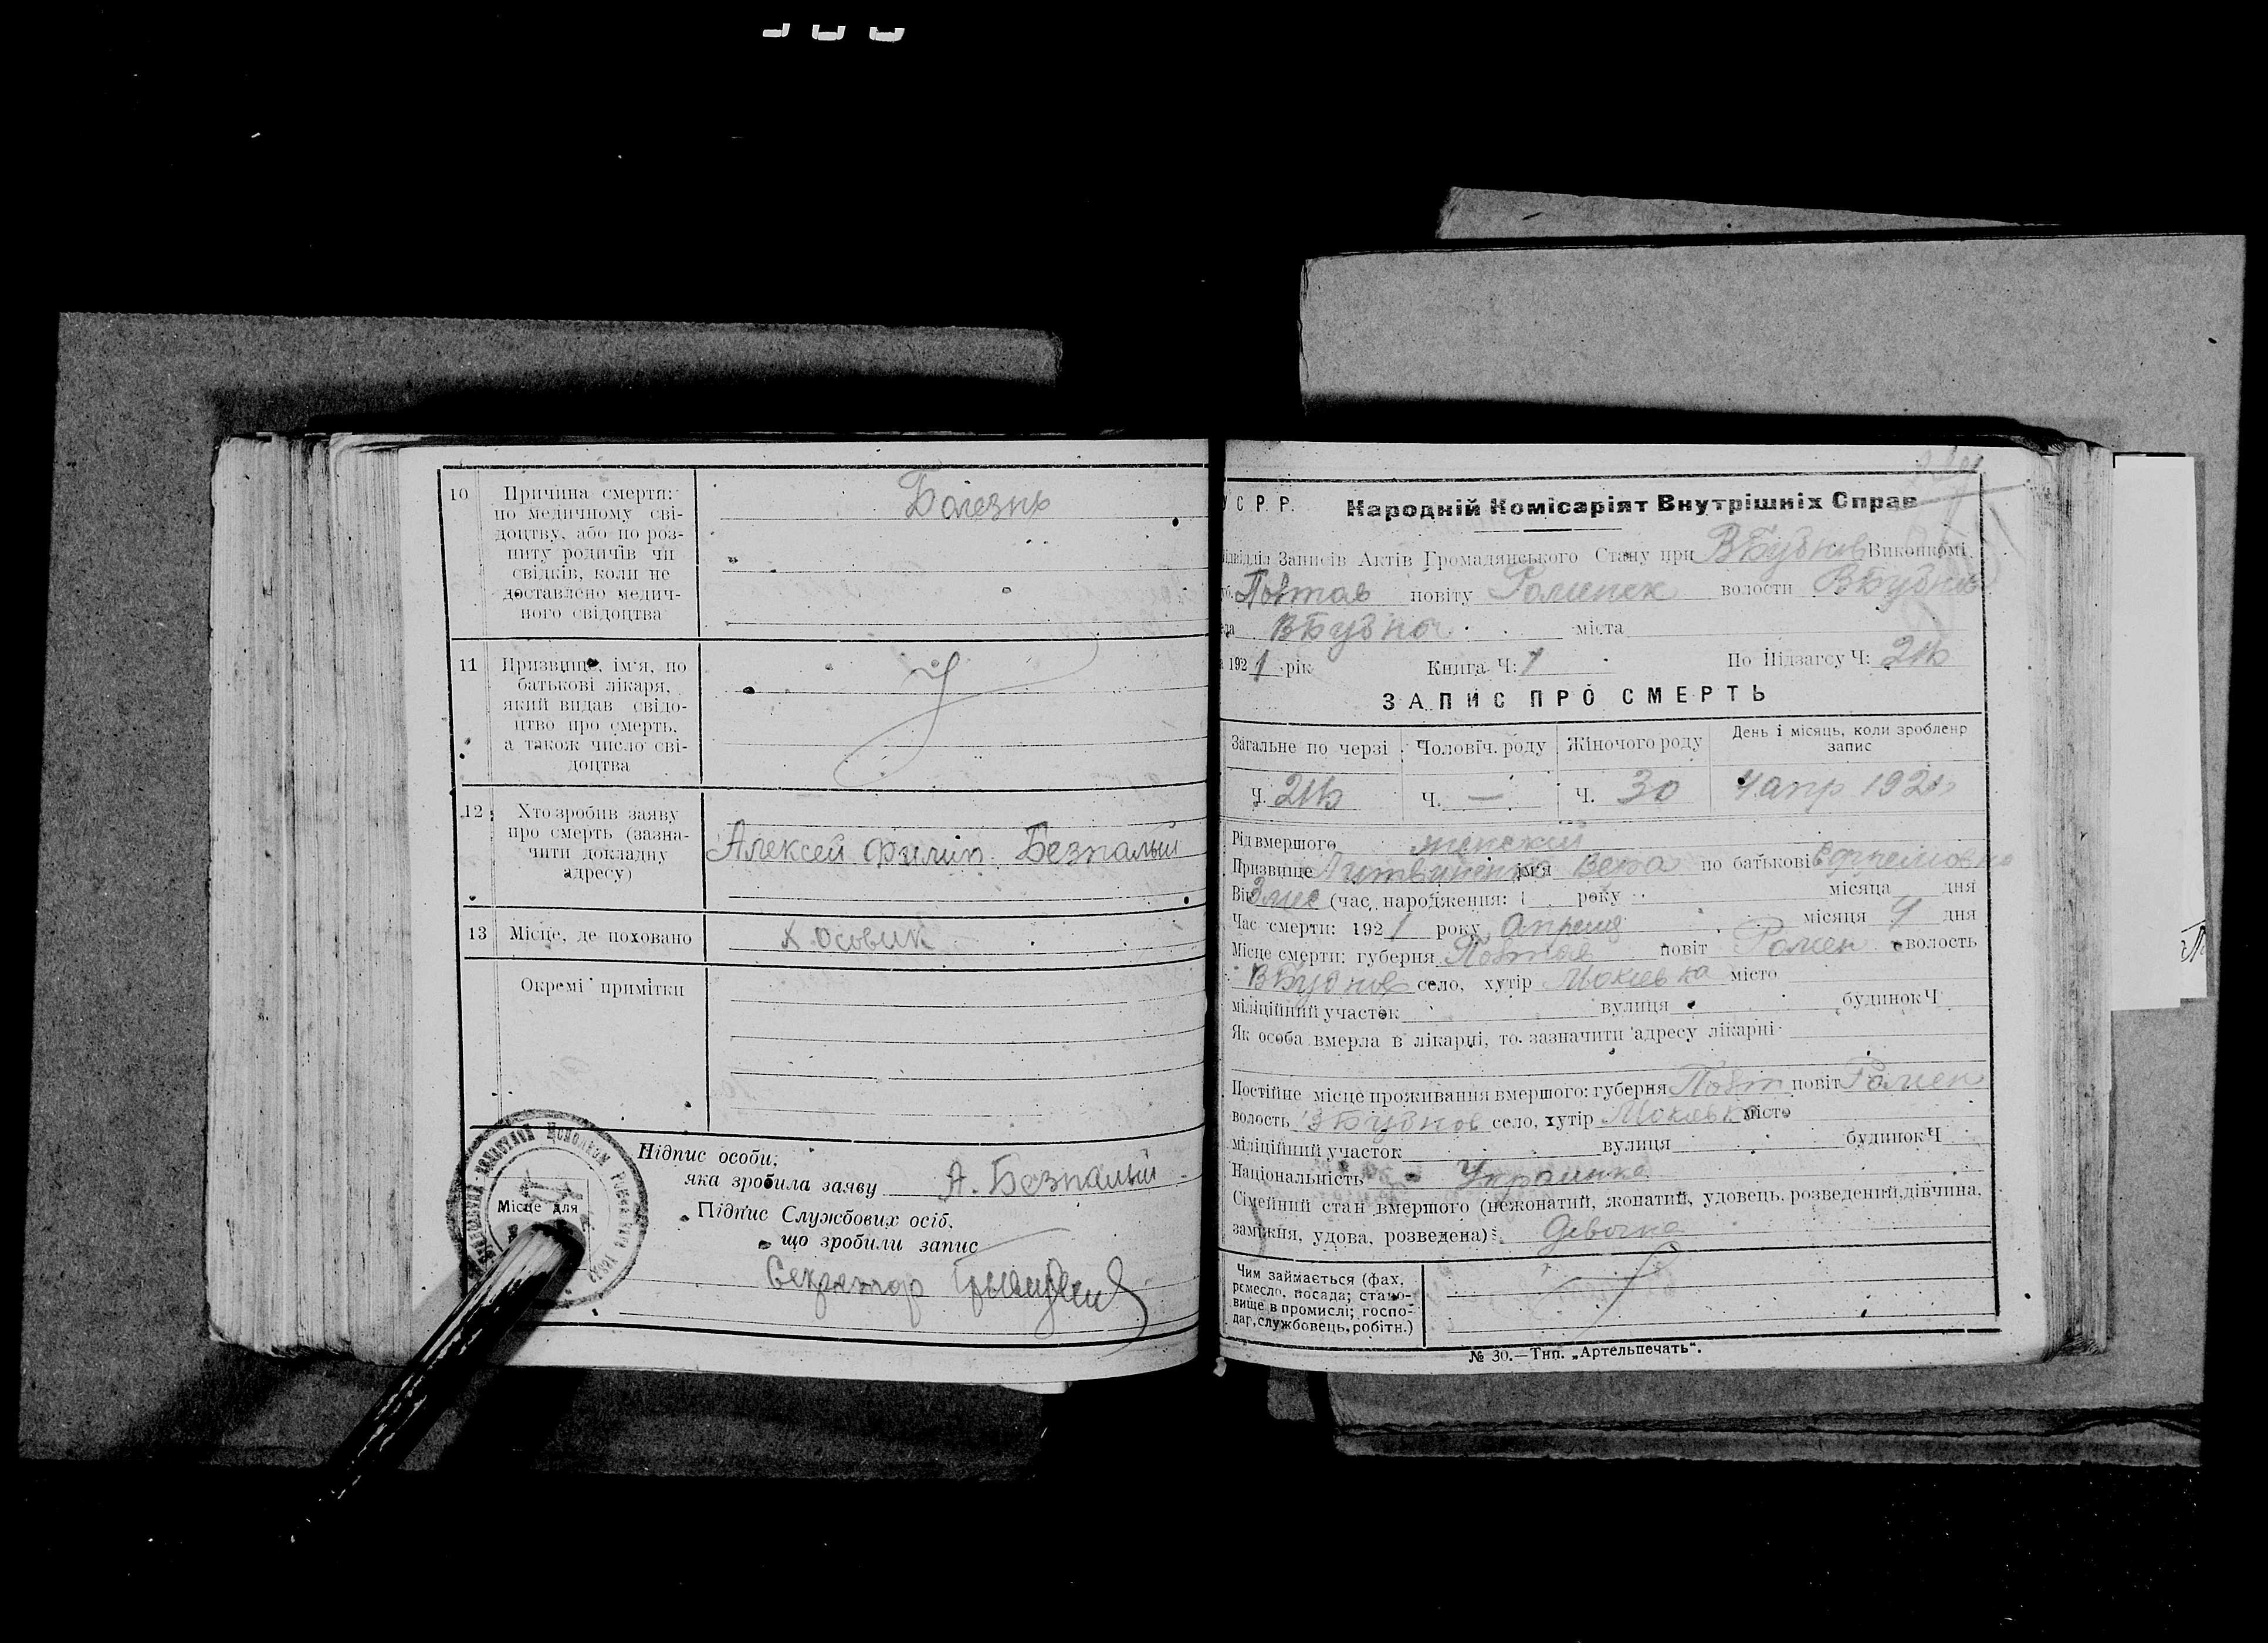 10 Причина смерти:
по медичному сві-
доцтву, або по роз-
питу родичів чи
свідків, коли не
доставлено медич-
ного свідоцтва
Болезнь
11 Призвище, ім'я, по
батькові лікаря,
який видав свідо-
цтво про смерть,
а також число сві-
доцтва
12 Хто зробив заяву
про смерть (зазна-
чити докладну
адресу)
Алексей Филип. Безпалый
13 Місце, де поховано
х Осовик
Окремі примітки
Місце для
Підпис особи,
яка зробила заяву А. Безпалый
Підпис Службових осіб,
що зробили запис
Секретар
У С. Р. Р. Народній Комісаріят Внутрішніх Справ
Підвідділ Записів Актів Громадянського Стану при ВБубнов Виконкомі
Полтав повіту Роменск волости ВБубнов
ВБубнов міста
192 1 рік Книга Ч: 1 По Підзагсу Ч: 216
ЗАПИС ПРО СМЕРТЬ
Загальне по черзі Чоловіч. роду Жіночого роду День і місяць, коли зроблено запис
Ч. 216 Ч. — Ч. 30 4 апр 1921
Рід вмершого женский
Призвище Литвиненко ім'я Вера по батькові
Вік 3 мес (час народження: 1 року місяца дня
Час смерти: 192 1 року Апреля місяця 4 дня
Місце смерти: губерня Полтав повіт Ромен волость
ВБубнов село, хутір Мокиевка місто
міліційний участок вулиця будинок Ч
Як особа вмерла в лікарні, то зазначити адресу лікарні
Постійне місце проживання вмершого: губерня Полт повіт Ромен
волость ВБубнов село, хутір Мокиевка місто
міліційний участок вулиця будинок Ч
Національність Украинка
Сімейний стан вмершого (нежонатий, жонатий, удовець, розведений, дівчина,
заміжня, удова, розведена): Девочка
Чим займається (фах,
ремесло, посада; стано-
вище в промислі; госпо-
дар, службовець, робітн.)
№ 30.—Тип. „Артельпечать“.